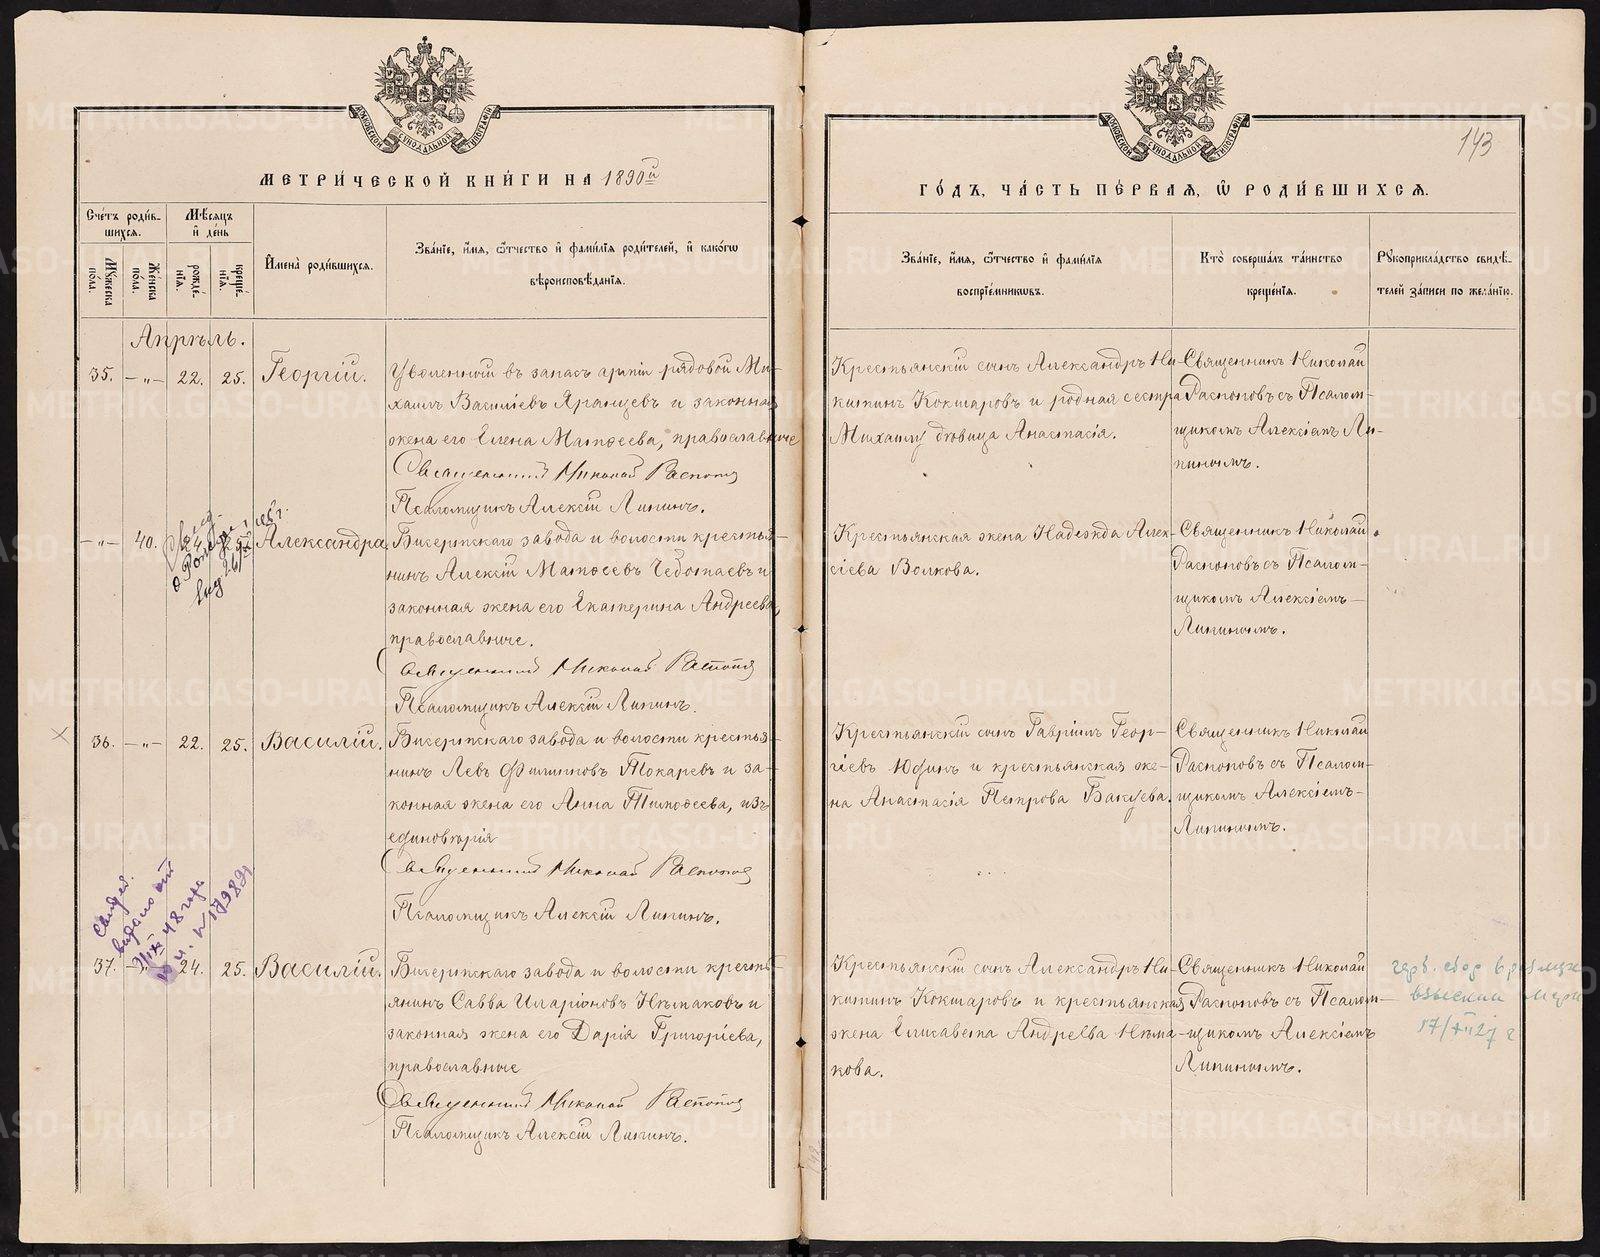 МОСКОВСКОЙ СѴНОДАЛЬНОЙ ТИПОГРАФІИ
МЕТРИ́ЧЕСКОЙ КНИ́ГИ НА 1890й
Сче́тъ роди́в-
шихсѧ.
Мѣ́сѧцъ
и҆ де́нь
Мꙋ́жеска
по́ла.
Же́нска
по́ла.
рожде́-
нїѧ.
креще́-
нїѧ.
И҆мена̀ роди́вшихсѧ.
Зва́нїе, и҆́мѧ, ѻ҆́тчество и҆ фами́лїѧ роди́телей, и҆ како́гѡ
вѣроисповѣ́данїѧ.
Апрѣль.
35. —"— 22. 25. Георгій.
Уволенной въ запасъ арміи рядовой Ми-
хаилъ Василіевъ Яранцевъ и законная
жена его Елена Матѳеева, православные
Священникъ Николай Распоповъ
Псаломщикъ Алексій Липинъ.
—"— 40. 24. 25. Александра.
Бисертскаго завода и волости крестья-
нинъ Алексій Матѳеевъ Чеботаевъ и
законная жена его Екатерина Андреева,
православные.
Священникъ Николай Распоповъ
Псаломщикъ Алексій Липинъ.
36. —"— 22. 25. Василій.
Бисертскаго завода и волости крестья-
нинъ Левъ Филипповъ Токаревъ и за-
конная жена его Анна Тимоѳеева, изъ
единовѣрія
Священникъ Николай Распоповъ
Псаломщикъ Алексій Липинъ.
Свидет.
выдано
48 года
37. 24. 25. Василій.
Бисертскаго завода и волости кресть-
янинъ Савва Иларіоновъ Нѣмаковъ и
законная жена его Дарія Григоріева,
православные
Священникъ Николай Распоповъ
Псаломщикъ Алексій Липинъ.
МОСКОВСКОЙ СѴНОДАЛЬНОЙ ТИПОГРАФІИ
143
ГО́ДЪ, ЧА́СТЬ ПЕ́РВАЯ, Ѽ РОДИ́ВШИХСѦ.
Зва́нїе, и҆́мѧ, ѻ҆́тчество и҆ фами́лїѧ
воспрїе́мникѡвъ.
Кто̀ соверша́лъ та́инство
креще́нїѧ.
Рꙋкоприкла́дство свидѣ́-
телей за́писи по жела́нїю.
Крестьянскій сынъ Александръ Ни-
китинъ Кокшаровъ и родная сестра
Михаилу дѣвица Анастасія.
Священникъ Николай
Распоповъ съ Псалом-
щикомъ Алексіемъ Ли-
пинымъ.
Крестьянская жена Надежда Алек-
сіева Волкова.
Священникъ Николай
Распоповъ съ Псалом-
щикомъ Алексіемъ
Липинымъ.
Крестьянскій сынъ Гавріилъ Геор-
гіевъ Юдинъ и крестьянская же-
на Анастасія Петрова Бакуева.
Священникъ Николай
Распоповъ съ Псалом-
щикомъ Алексіемъ
Липинымъ.
Крестьянскій сынъ Александръ Ни-
китинъ Кокшаровъ и крестьянская
жена Елисавета Андреева Нѣма-
кова.
Священникъ Николай
Распоповъ съ Псалом-
щикомъ Алексіемъ
Липинымъ.
герб. сбор
взыскан
METRIKI.GASO-URAL.RU